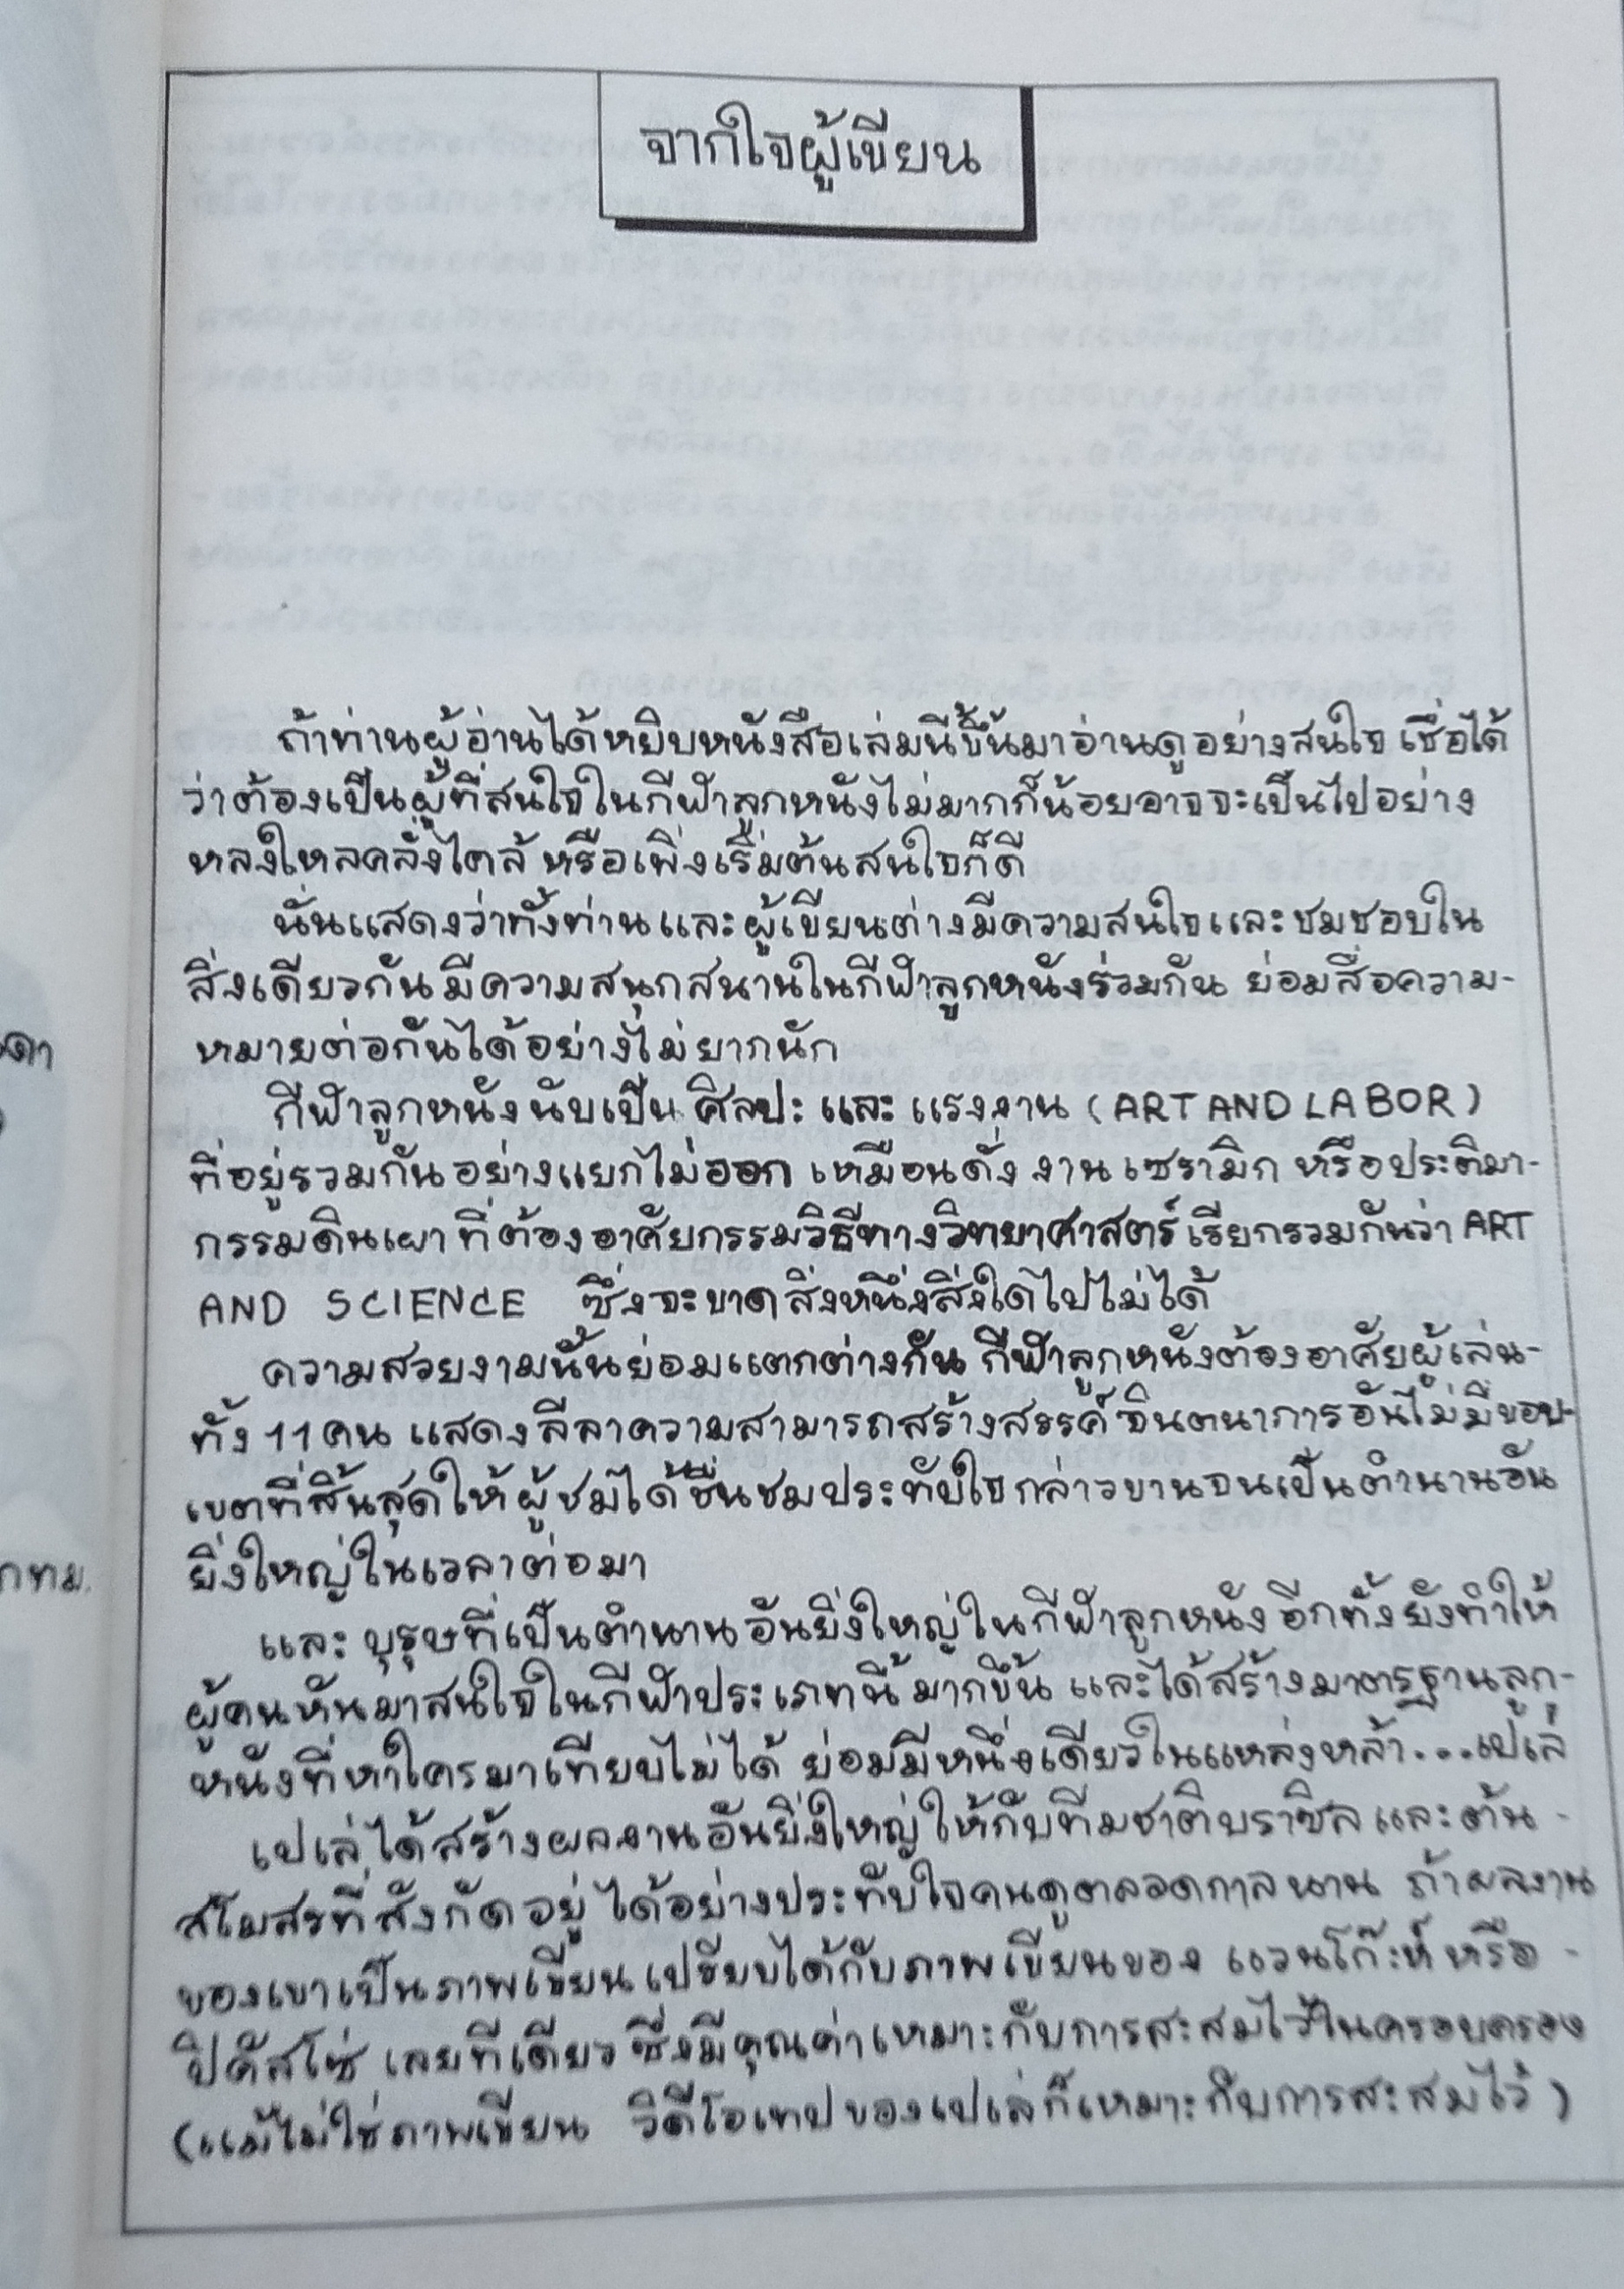 จากใจผู้เขียน
ถ้าท่านผู้อ่านได้หยิบหนังสือเล่มนี้ขึ้นมาอ่านดูอย่างสนใจ เชื่อได้
ว่าต้องเป็นผู้ที่สนใจในกีฬาลูกหนังไม่มากก็น้อยอาจจะเป็นไปอย่าง
หลงใหลคลั่งไคล้ หรือเพิ่งเริ่มต้นสนใจก็ดี
นั่นแสดงว่าทั้งท่านและผู้เขียนต่างมีความสนใจและชมชอบใน
สิ่งเดียวกัน มีความสนุกสนานในกีฬาลูกหนังร่วมกัน ย่อมสื่อความ-
หมายต่อกันได้อย่างไม่ยากนัก
กีฬาลูกหนังนับเป็น ศิลปะ และ แรงงาน (ART AND LABOR)
ที่อยู่รวมกันอย่างแยกไม่ออก เหมือนดั่ง งานเซรามิก หรือประติมา-
กรรมดินเผา ที่ต้องอาศัยกรรมวิธีทางวิทยาศาสตร์ เรียกรวมกันว่า ART
AND SCIENCE ซึ่งจะขาดสิ่งหนึ่งสิ่งใดไปไม่ได้
ความสวยงามนั้นย่อมแตกต่างกัน กีฬาลูกหนังต้องอาศัยผู้เล่น-
ทั้ง 11 คน แสดงลีลาความสามารถสร้างสรรค์ จินตนาการอันไม่มีขอบ-
เขตที่สิ้นสุดให้ผู้ชมได้ชื่นชมประทับใจกล่าวขานจนเป็นตำนานอัน
ยิ่งใหญ่ในเวลาต่อมา
และ บุรุษที่เป็นตำนานอันยิ่งใหญ่ในกีฬาลูกหนัง อีกทั้งยังทำให้
ผู้คนหันมาสนใจในกีฬาประเภทนี้มากขึ้น และได้สร้างมาตรฐานลูก-
หนังที่หาใครมาเทียบไม่ได้ ย่อมมีหนึ่งเดียวในแหล่งหล้า...เปเล่
เปเล่ได้สร้างผลงานอันยิ่งใหญ่ให้กับทีมชาติบราซิล และต้น-
สโมสรที่สังกัดอยู่ ได้อย่างประทับใจคนดูตลอดกาลนาน ถ้าผลงาน
ของเขาเป็นภาพเขียน เปรียบได้กับภาพเขียนของ แวนโก๊ะห์ หรือ-
ปิคัสโซ่ เลยทีเดียว ซึ่งมีคุณค่าเหมาะกับการสะสมไว้ในครอบครอง
(แม้ไม่ใช่ภาพเขียน วิดีโอเทปของเปเล่ก็เหมาะกับการสะสมไว้)
กทม.